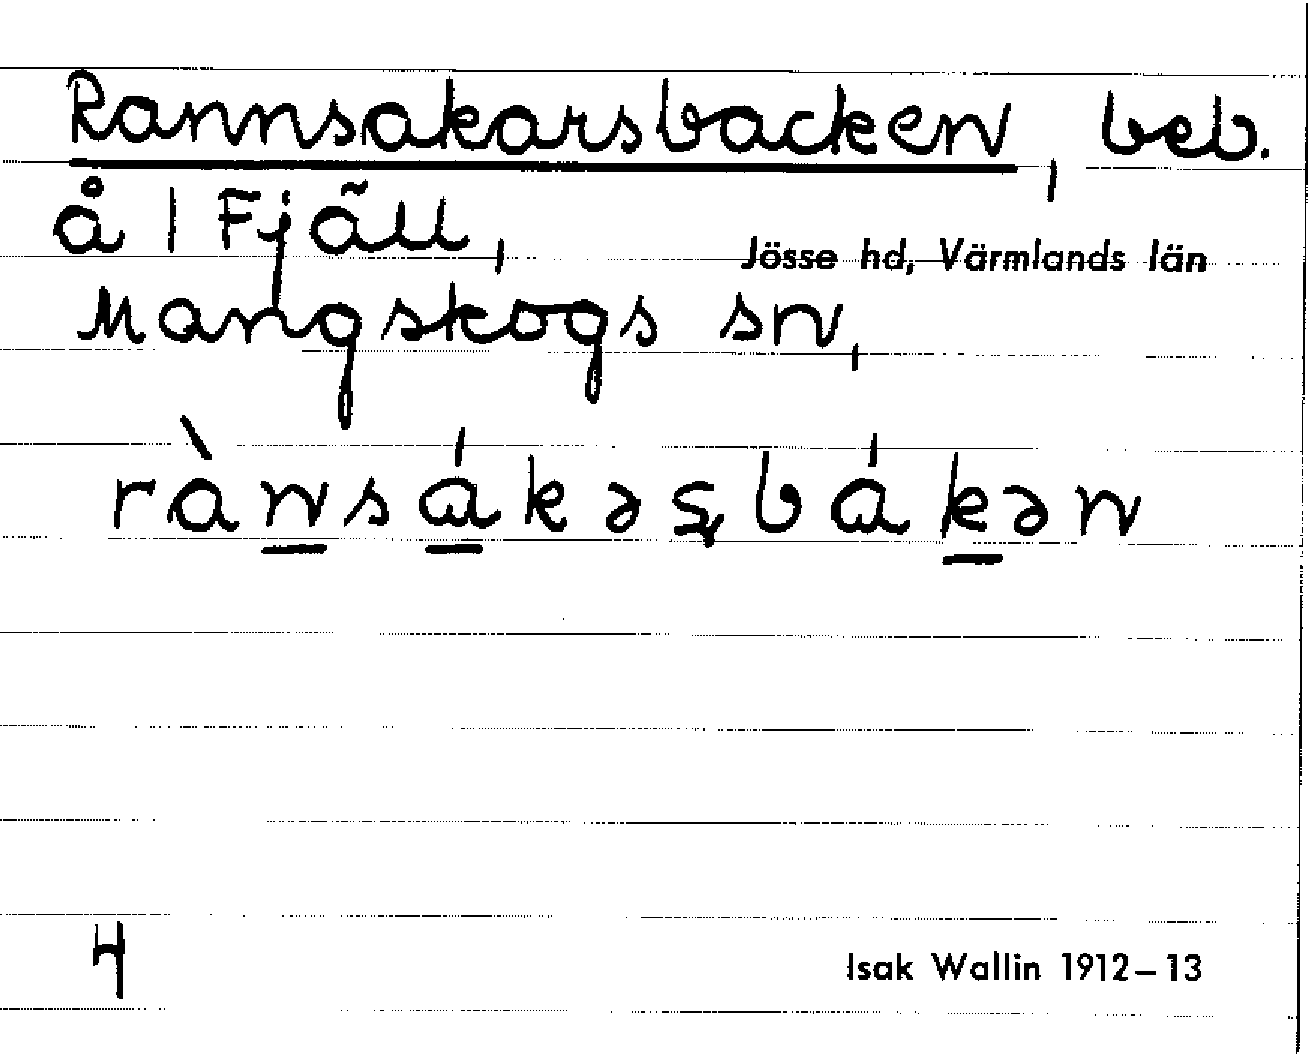 Rannsakarsbacken, beb.
å 1 Fjäll,
Jösse hd, Värmlands län
Mangskogs sn,
rànsákəʂbákən
4
Isak Wallin 1912–13